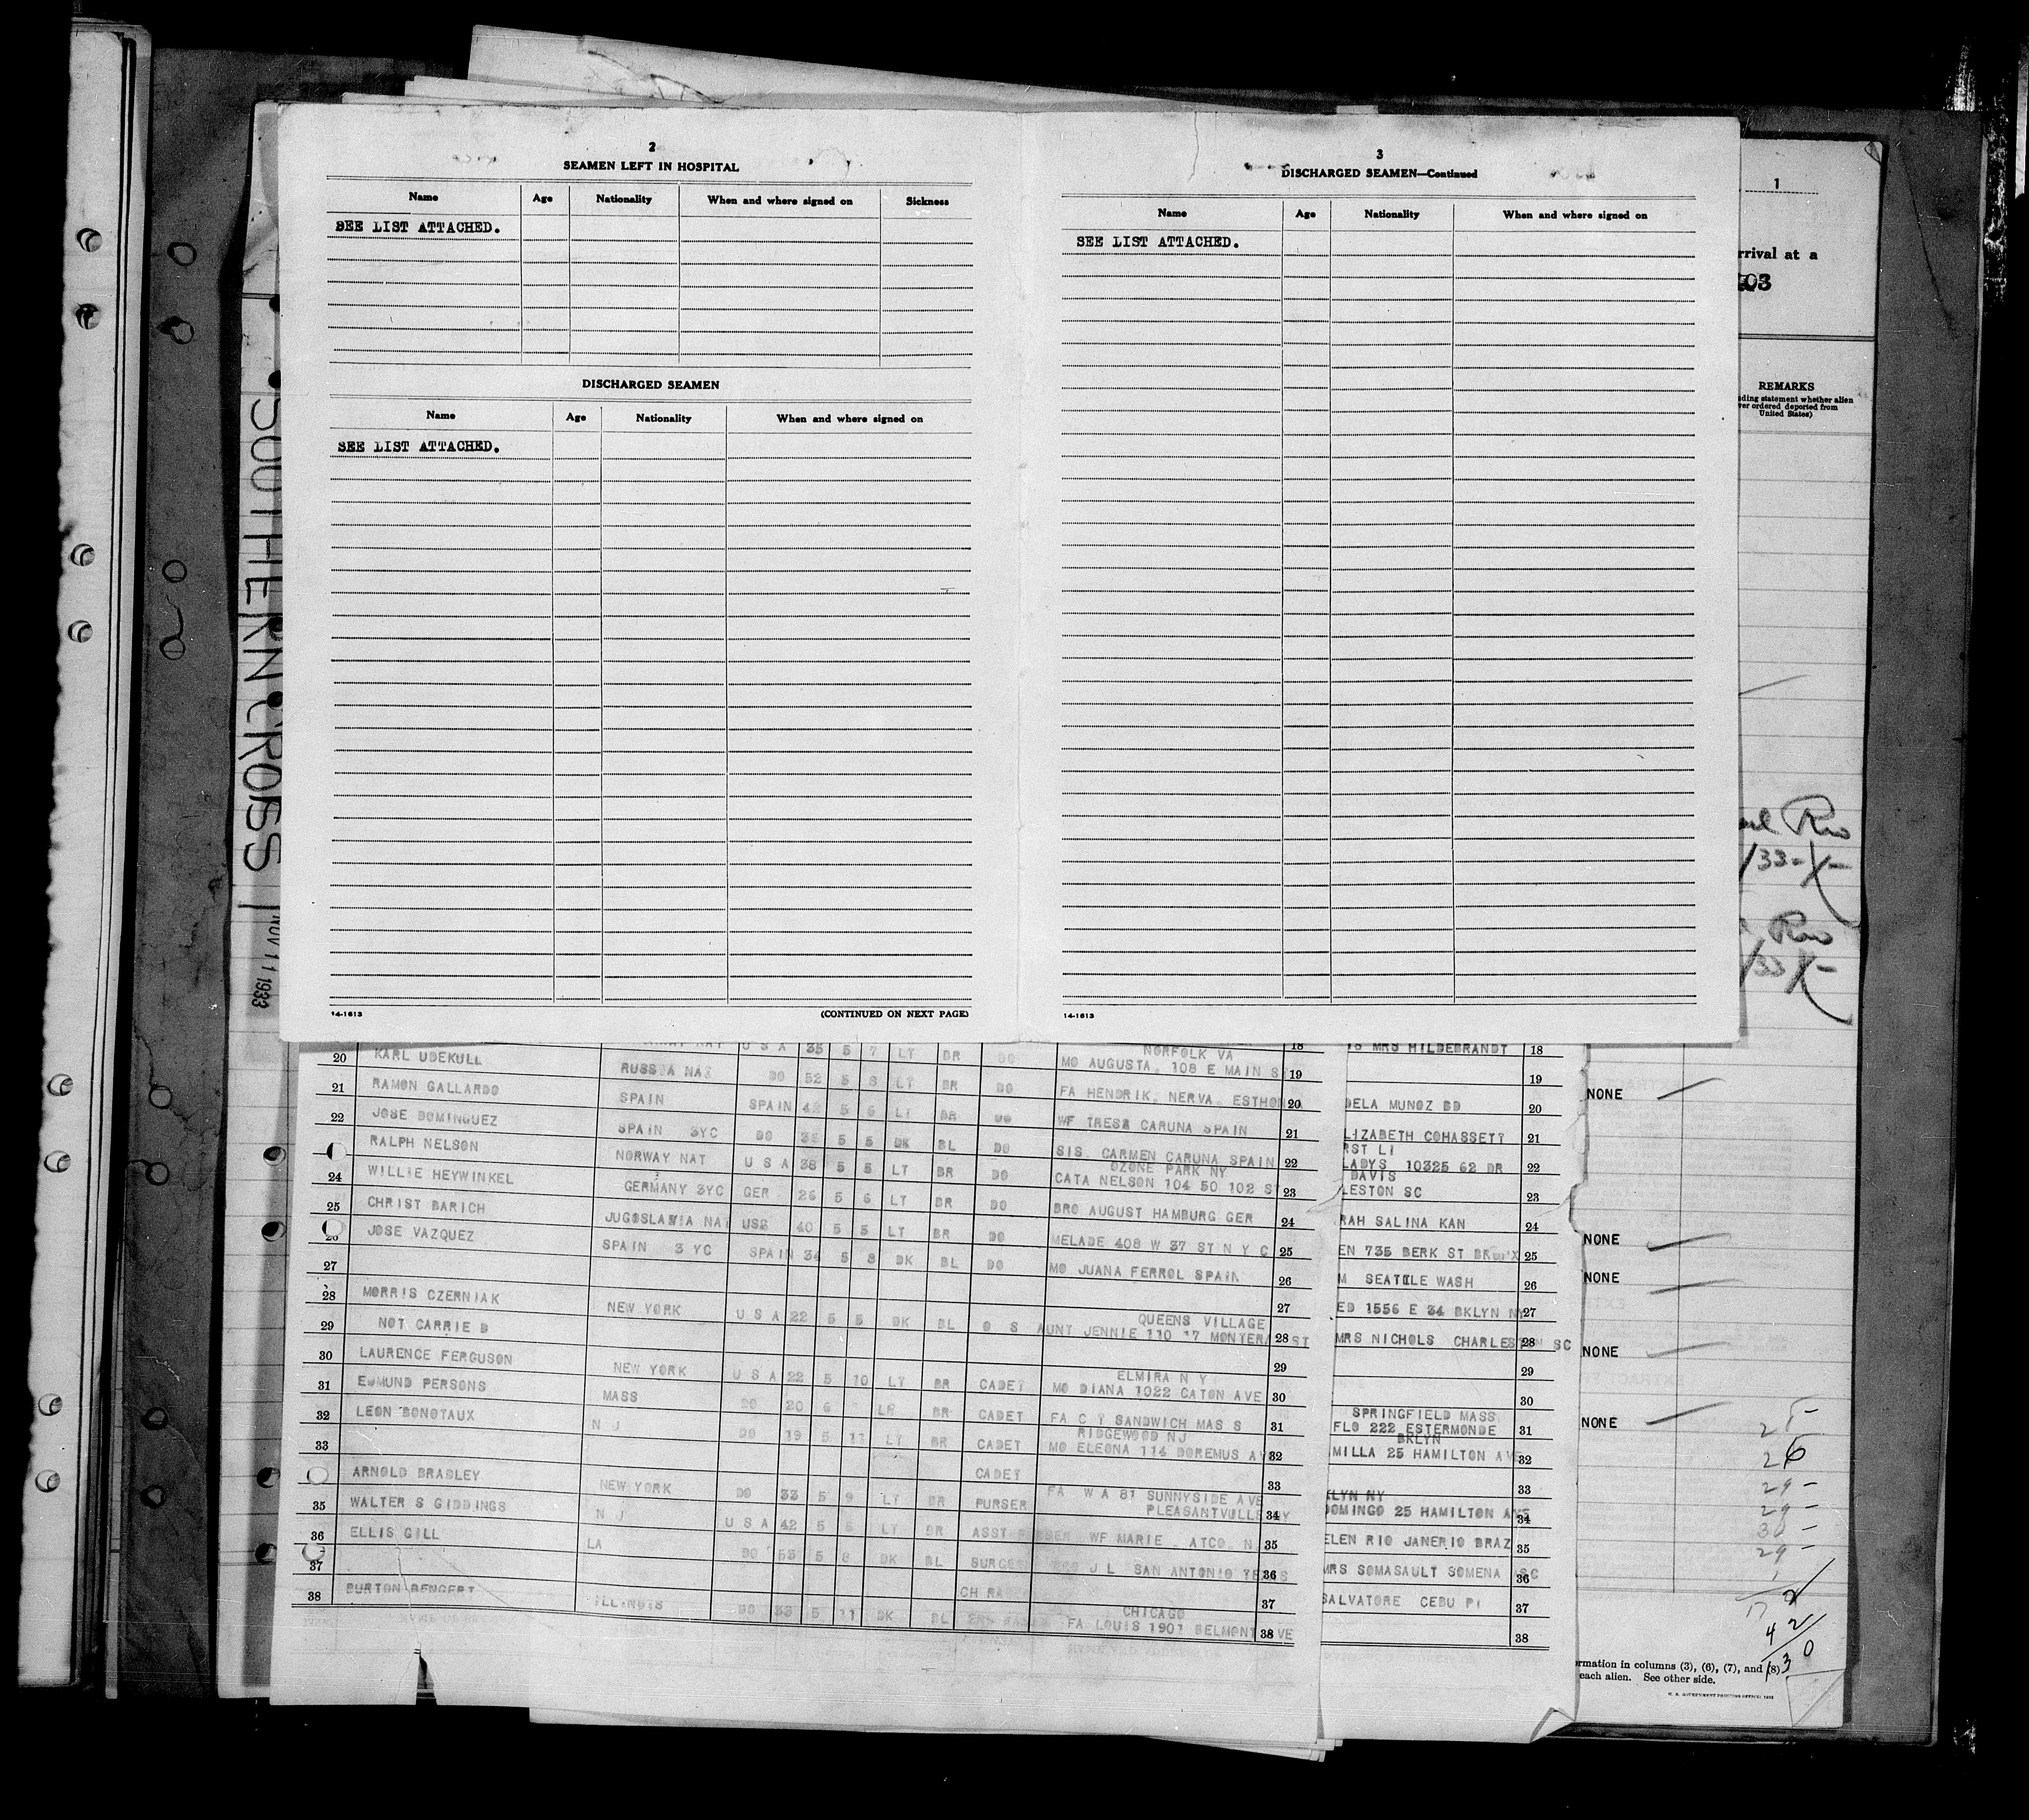 2
SEAMEN LEFT IN HOSPITAL
Name Age Nationality When and where signed on Sickness
SEE LIST ATTACHED.
DISCHARGED SEAMEN
Name Age Nationality When and where signed on
SEE LIST ATTACHED.
14-1613 (CONTINUED ON NEXT PAGE)
3
DISCHARGED SEAMEN—Continued
Name Age Nationality When and where signed on
SEE LIST ATTACHED.
14-1613
1
rrival at a
103
REMARKS
ding statement whether alien
ver ordered deported from
United States)
Rio
/33-X-
Rio
/33 X-
SOUTHERN CROSS
NOV 11 1933
U S A 35 5 7 LT BR DO NORFOLK VA 18
20 KARL UDEKULL RUSSIA NAT DO 52 5 8 LT BR DO MO AUGUSTA. 108 E MAIN S 19
21 RAMON GALLARDO SPAIN SPAIN 42 5 6 LT BR DO FA HENDRIK. NERVA. ESTHONIA 20
22 JOSE DOMINGUEZ SPAIN 3YC DO 5 5 DK BL DO WF TRESA CARUNA SPAIN 21
RALPH NELSON NORWAY NAT U S A 38 5 5 LT BR DO SIS. CARMEN CARUNA SPAIN 22
OZONE PARK NY
24 WILLIE HEYWINKEL GERMANY 3YC GER 26 5 6 LT BR DO CATA NELSON 104 50 102 ST 23
25 CHRIST BARICH JUGOSLAVIA NAT USA 40 5 5 LT BR DO BRO AUGUST HAMBURG GER 24
26 JOSE VAZQUEZ SPAIN 3 YC SPAIN 34 5 8 DK BL DO MELADE 408 W 37 ST N Y C 25
27 MO JUANA FERROL SPAIN 26
28 MORRIS CZERNIAK NEW YORK U S A 22 5 5 DK BL O S 27
QUEENS VILLAGE
29 NOT CARRIED AUNT JENNIE 110 17 MONTERA ST 28
30 LAURENCE FERGUSON NEW YORK U S A 22 5 10 LT BR CADET 29
ELMIRA N Y
31 EDMUND PERSONS MASS DO 20 6 LR BR CADET MO DIANA 1022 CATON AVE 30
32 LEON BONOTAUX N J DO 19 5 11 LT BR CADET FA C Y SANDWICH MASS 31
RIDGEWOOD NJ
33 MO ELEONA 114 DOREMUS AV 32
CADET
ARNOLD BRADLEY NEW YORK DO 33 5 9 LT BR PURSER 33
FA W A 81 SUNNYSIDE AVE
PLEASANTVILLE NY 34
35 WALTER S GIDDINGS N J U S A 42 5 6 LT BR ASST PURSER WF MARIE . ATCO. N. 35
36 ELLIS GILL LA DO 53 5 8 DK BL SURGEO J L SAN ANTONIO TEXAS 36
37 CH RA 37
CHICAGO
38 BURTON BENGERT ILLINOIS DO 33 5 11 DK BL FA LOUIS 1907 BELMONT AVE 38
MRS HILDEBRANDT 18
19
DELA MUNOZ BD 20
LIZABETH COHASSETT 21
RST LI
LADYS 10325 62 DR 22
DAVIS
LESTON SC 23
RAH SALINA KAN 24
EN 735 BERK ST BRONX 25
M SEATTLE WASH 26
ED 1556 E 34 BKLYN NY 27
MRS NICHOLS CHARLESTON SC 28
29
30
SPRINGFIELD MASS
FLO 222 ESTERMONDE 31
BKLYN
MILLA 25 HAMILTON AV 32
33
KLYN NY
DOMINGO 25 HAMILTON AVE 34
ELEN RIO JANERIO BRAZ 35
MRS SOMASAULT SOMENA SC 36
SALVATORE CEBU PI 37
38
NONE
NONE
NONE
NONE
NONE
26
29 -
29 -
30 -
29 -
17 2
4 2
130
ormation in columns (3), (6), (7), and (8)
each alien. See other side.
U. S. GOVERNMENT PRINTING OFFICE: 1932